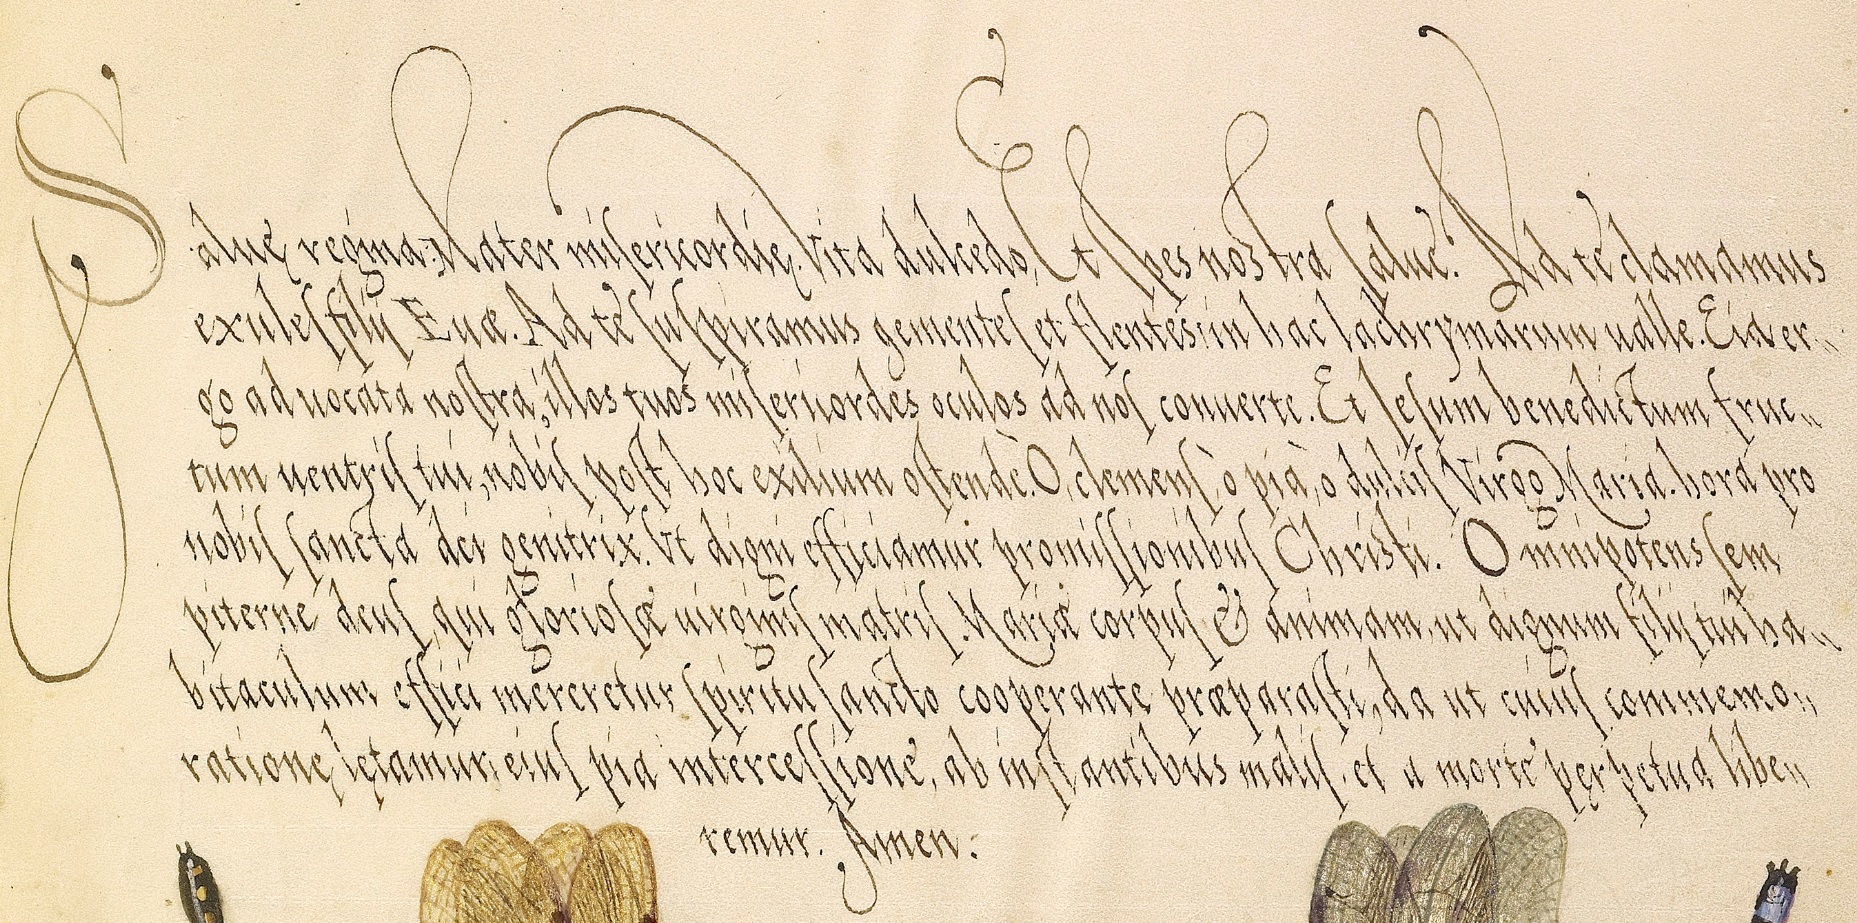 Salue regina. Mater misericordię. Vita dulcedo, Et spes nostra salue. Ad te clamamus
exules filij Euæ. Ad te suspiramus gementes et flentes in hac lachrymarum ualle. Eia er„
go aduocata nostra, illos tuos misericordes oculos ad nos conuerte. Et Iesum benedictum fruc„
tum uentris tui, nobis post hoc exilium ostende. O, clemens, o pia, o dulcis Virgo Maria. hora pro
nobis sancta dei genitrix. Vt digni efficiamur promissionibus Christi. Omnipotens sem
piterne deus, qui gloriosæ uirginis matris Mariæ corpus & animam, ut dignum filij tui ha„
bitaculum effici mereretur spiritu sancto cooperante præparasti, da ut cuius commemo„
ratione lętamur: eius pia intercessione, ab instantibus malis, et a morte perpetua libe„
remur. Amen: